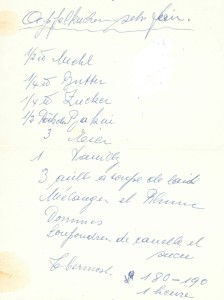 Apfelkuchen sehr fein.
1/2 ℔ Mehl
1/4 ℔ Butter
1/4 ℔ Zucker
1/2 Päckchen Bakin
3 Eier
1 Vanille
3 cuill à soupe de lait
Mélanger et Rhum
Pommes
Saupoudrer de canelle et sucre
180-190
1 heure